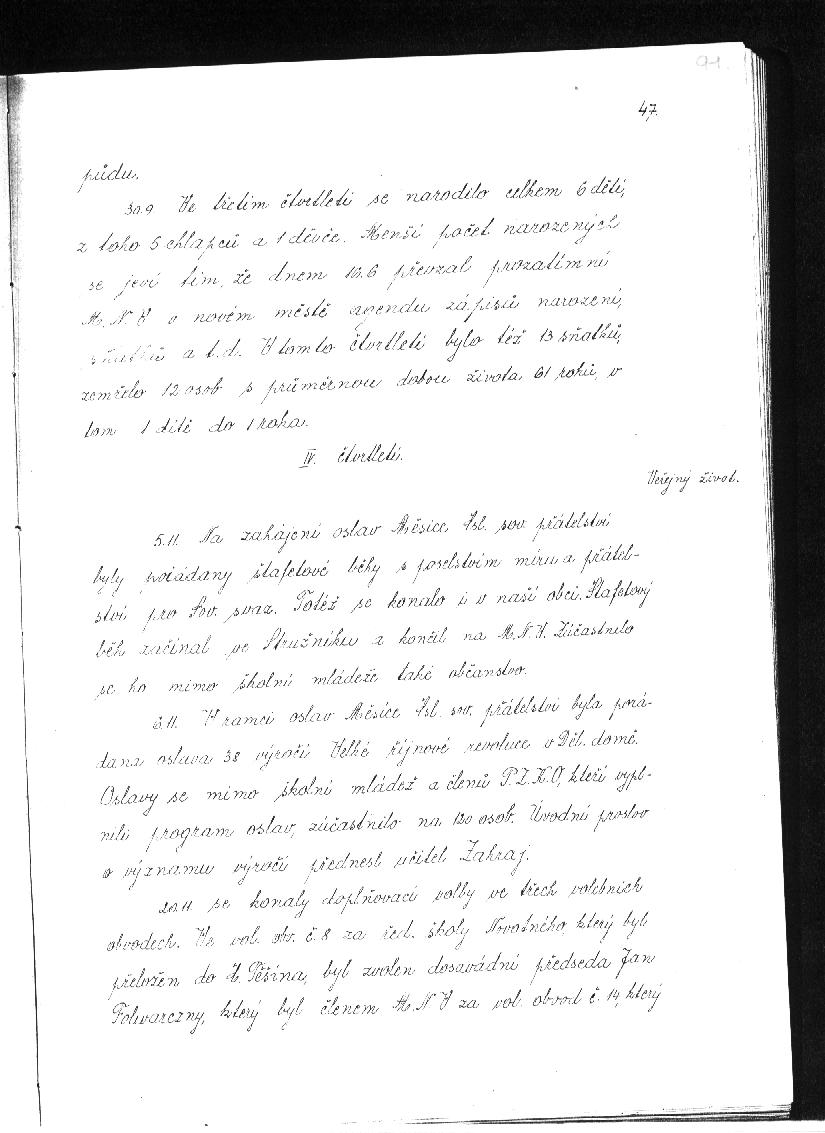 91.
47.
půdu.
30.9 Ve třetím čtvrtletí se narodilo celkem 6 dětí,
z toho 5 chlapců a 1 děvče. Menší počet narozených
se jeví tím, že dnem 16.6 převzal prozatímní
M.N.V v novém městě agendu zápisů narození,
sňatků a t.d. V tomto čtvrtletí bylo též 13 sňatků,
zemřelo 12 osob s průměrnou dobou života 61 roků, v
tom 1 dítě do 1 roka.
IV. čtvrtletí.
Veřejný život.
5.11. Na zahájení oslav Měsíce čsl. sov. přátelství
byly pořádany štafetové běhy s poselstvím míru a přátel-
ství pro Sov. svaz. Totéž se konalo i v naší obci. Štafetový
běh začínal ve Stružníku a končil na M.N.V. Zúčastnilo
se ho mimo školní mládeže také občanstvo.
6.11. V rámci oslav Měsíce čsl. sov. přátelství byla pořá-
dana oslava 38 výročí Velké říjnové revoluce v Děl. domě.
Oslavy se mimo školní mládež a členů P.Z.K.O, kteří vypl-
nili program oslav, zúčastnilo na 120 osob. Úvodní proslov
o významu výročí přednesl učitel Zahraj.
20.11. se konaly doplňovací volby ve třech volebních
obvodech. Ve vol. obv. č. 8 za řed. školy Novotného, který byl
přeložen do Č. Těšína, byl zvolen dosavádní předseda Jan
Folwarczny, který byl členem M.N.V za vol. obvod č. 14, který